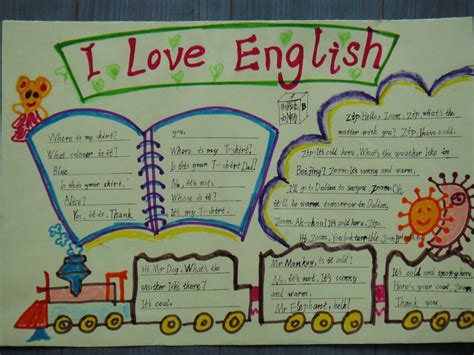 I Love English
Where is my skirt?
What colour is it?
Blue
Is this your skirt,
Alice?
Yes, it is. Thank
you.
Where is my T-shirt,
Is this your T-shirt Dad?
No, it's not.
Whose is it?
It's my T-shirt.
Zip: Hello, Zoom. Zip: what's the
matter with you? Zip: I have cold.
Zip: It's cold here. What's the weather like in
Beijing? Zoom: It's sunny and warm,
I'll go to Dalian to surprise Zoom: OK
it'll be warm tomorrow in Dalian,
Zoom: Ah-choo! It's cold here, Zip:
Hi, Zoom. You look terrible. Zoom:
Hi, Mr Dog. What's the
weather like there?
It's cool.
Mr Monkey, is it cold?
No, it's not. It's sunny
and warm.
Mr Elephant, help!
It's cold and snowy here
Here's your coat, Zoom
Thank you,